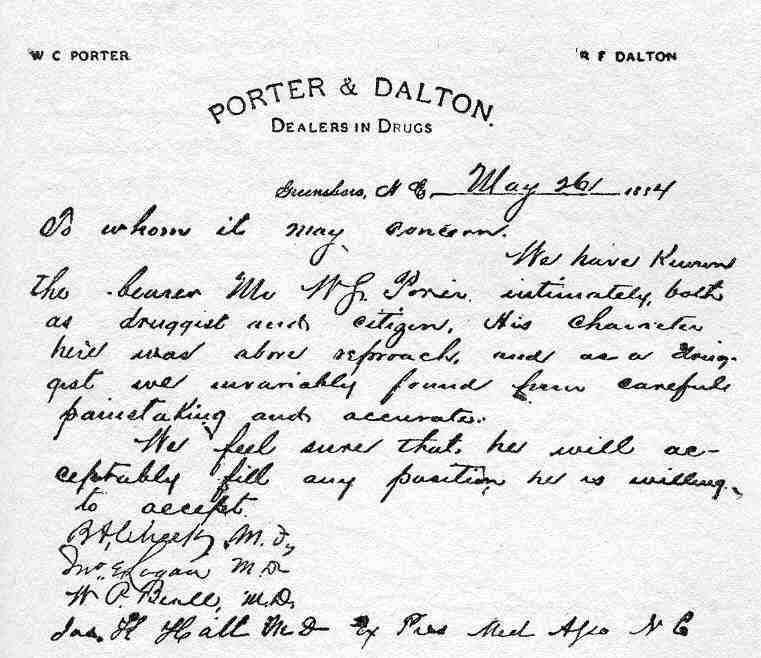 W C PORTER
R F DALTON
PORTER & DALTON.
DEALERS IN DRUGS
Greensboro, N C, May 26 1884
To whom it may concern.
We have Known
the bearer Mr W S. Porter intimately, both
as druggist and citizen. His character
here was above reproach, and as a drug-
gist we invariably found him careful
painstaking and accurate.
We feel sure that he will ac-
ceptably fill any position he is willing
to accept.
M.D,
Jno. E Logan M.D
W P. Beall, M.D.
Jas. K Hall M D Ex Pres Med Asso N C